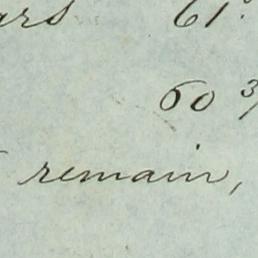 61.
60 3/
remain,